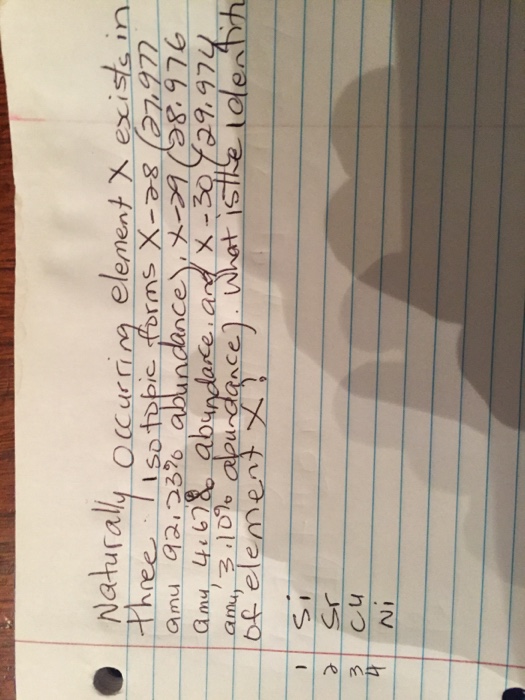 Naturally occurring element X exists in
three isotopic forms X-28 (27.977
amu 92.23% abundance), X-29 (28.976
amu, 4.67% abundance, and X-30 (29.974
amu, 3.10% abundance). What is the identity
of element X?
1 Si
2 Sr
3 Cu
4 Ni